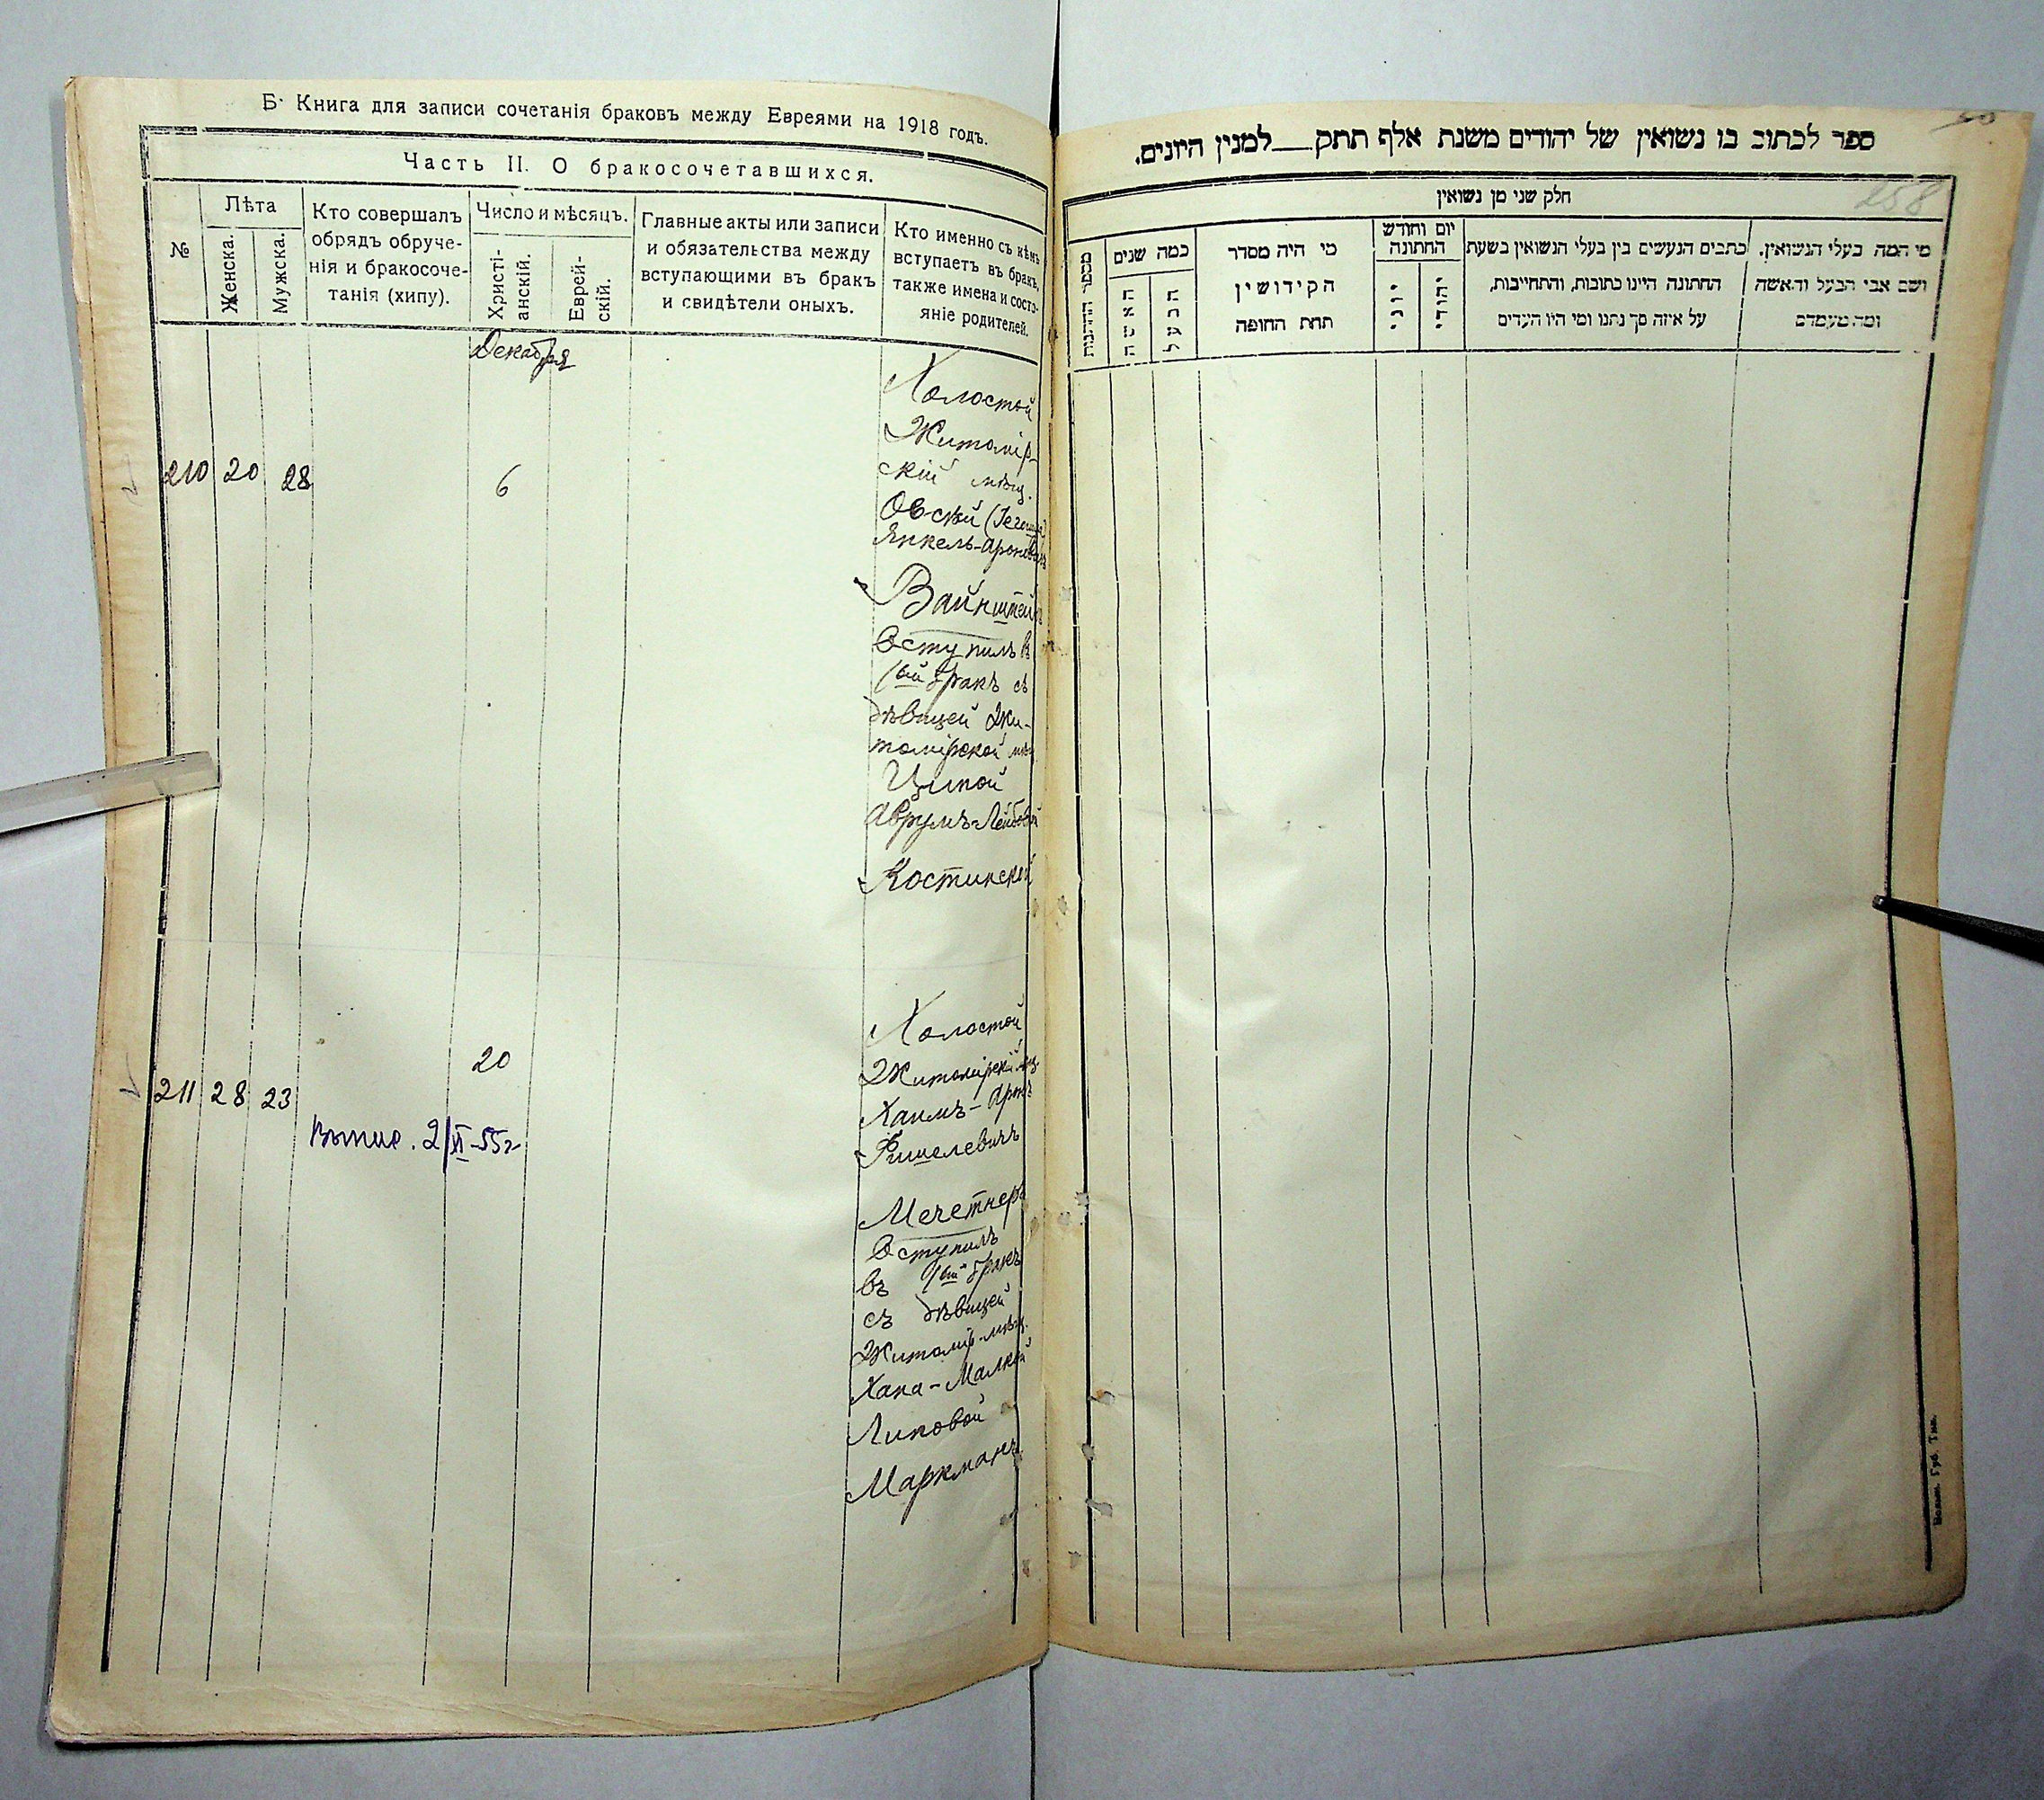 Б. Книга для записи сочетанія браковъ между Евреями на 1918 годъ.
Часть II. О бракосочетавшихся.
№
Лѣта
Женска.
Мужска.
Кто совершалъ
обрядъ обруче-
нія и бракосоче-
танія (хипу).
Число и мѣсяцъ.
Христі-
анскій.
Еврей-
скій.
Главные акты или записи
и обязательства между
вступающими въ бракъ
и свидѣтели оныхъ.
Кто именно съ кѣмъ
вступаетъ въ бракъ,
также имена и состо-
яніе родителей.
Декабря
210 20 28 6
Холостой
Житомір-
скій мѣщ.
Янкель-Ароновичъ
Вайнштейнъ
вступилъ въ
1ый бракъ съ
дѣвицей Жи-
томірской мѣщ
Ципой
Аврумъ-Лейбовой
Костинской
211 28 23 20
Выпис. 2/XI-55г
Холостой
Житомірскій мѣщ.
Хаимъ-Аронъ
Фишелевичъ
Мечетнеръ
вступилъ
въ 1ый бракъ
съ дѣвицей
Житомір. мѣщ.
Хана-Малкой
Липовой
Маркманъ
ספר לכתוב בו נשואין של יהודים משנת אלף תתק___למנין היונים.
258
חלק שני מן נשואין
מספר החתונות
כמה שנים
האשה
הבעל
מי היה מסדר
הקידושין
תחת החופה
יום וחודש
החתונה
יוני
יהודי
כתבים הנעשים בין בעלי הנשואין בשעת
החתונה היינו כתובות, והתחייבות,
על איזה סך נתנו ומי היו העדים
מי המה בעלי הנשואין.
ושם אבי הבעל והאשה
ומה מעמדם
Волын. Губ. Тип.